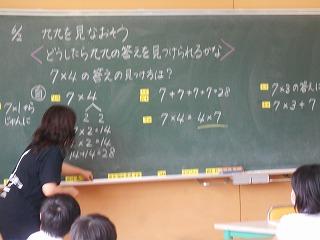 6/2 九九を見なおそう
<どうしたら九九の答えを見つけられるかな>
7×4の答えの見つけ方は?
7×1から
じゅんに
7×4
2 2
7×2=14
7×2=14
14+14=28
7+7+7+7=28
7×4=4×7
7×3の答えに
7×3+7